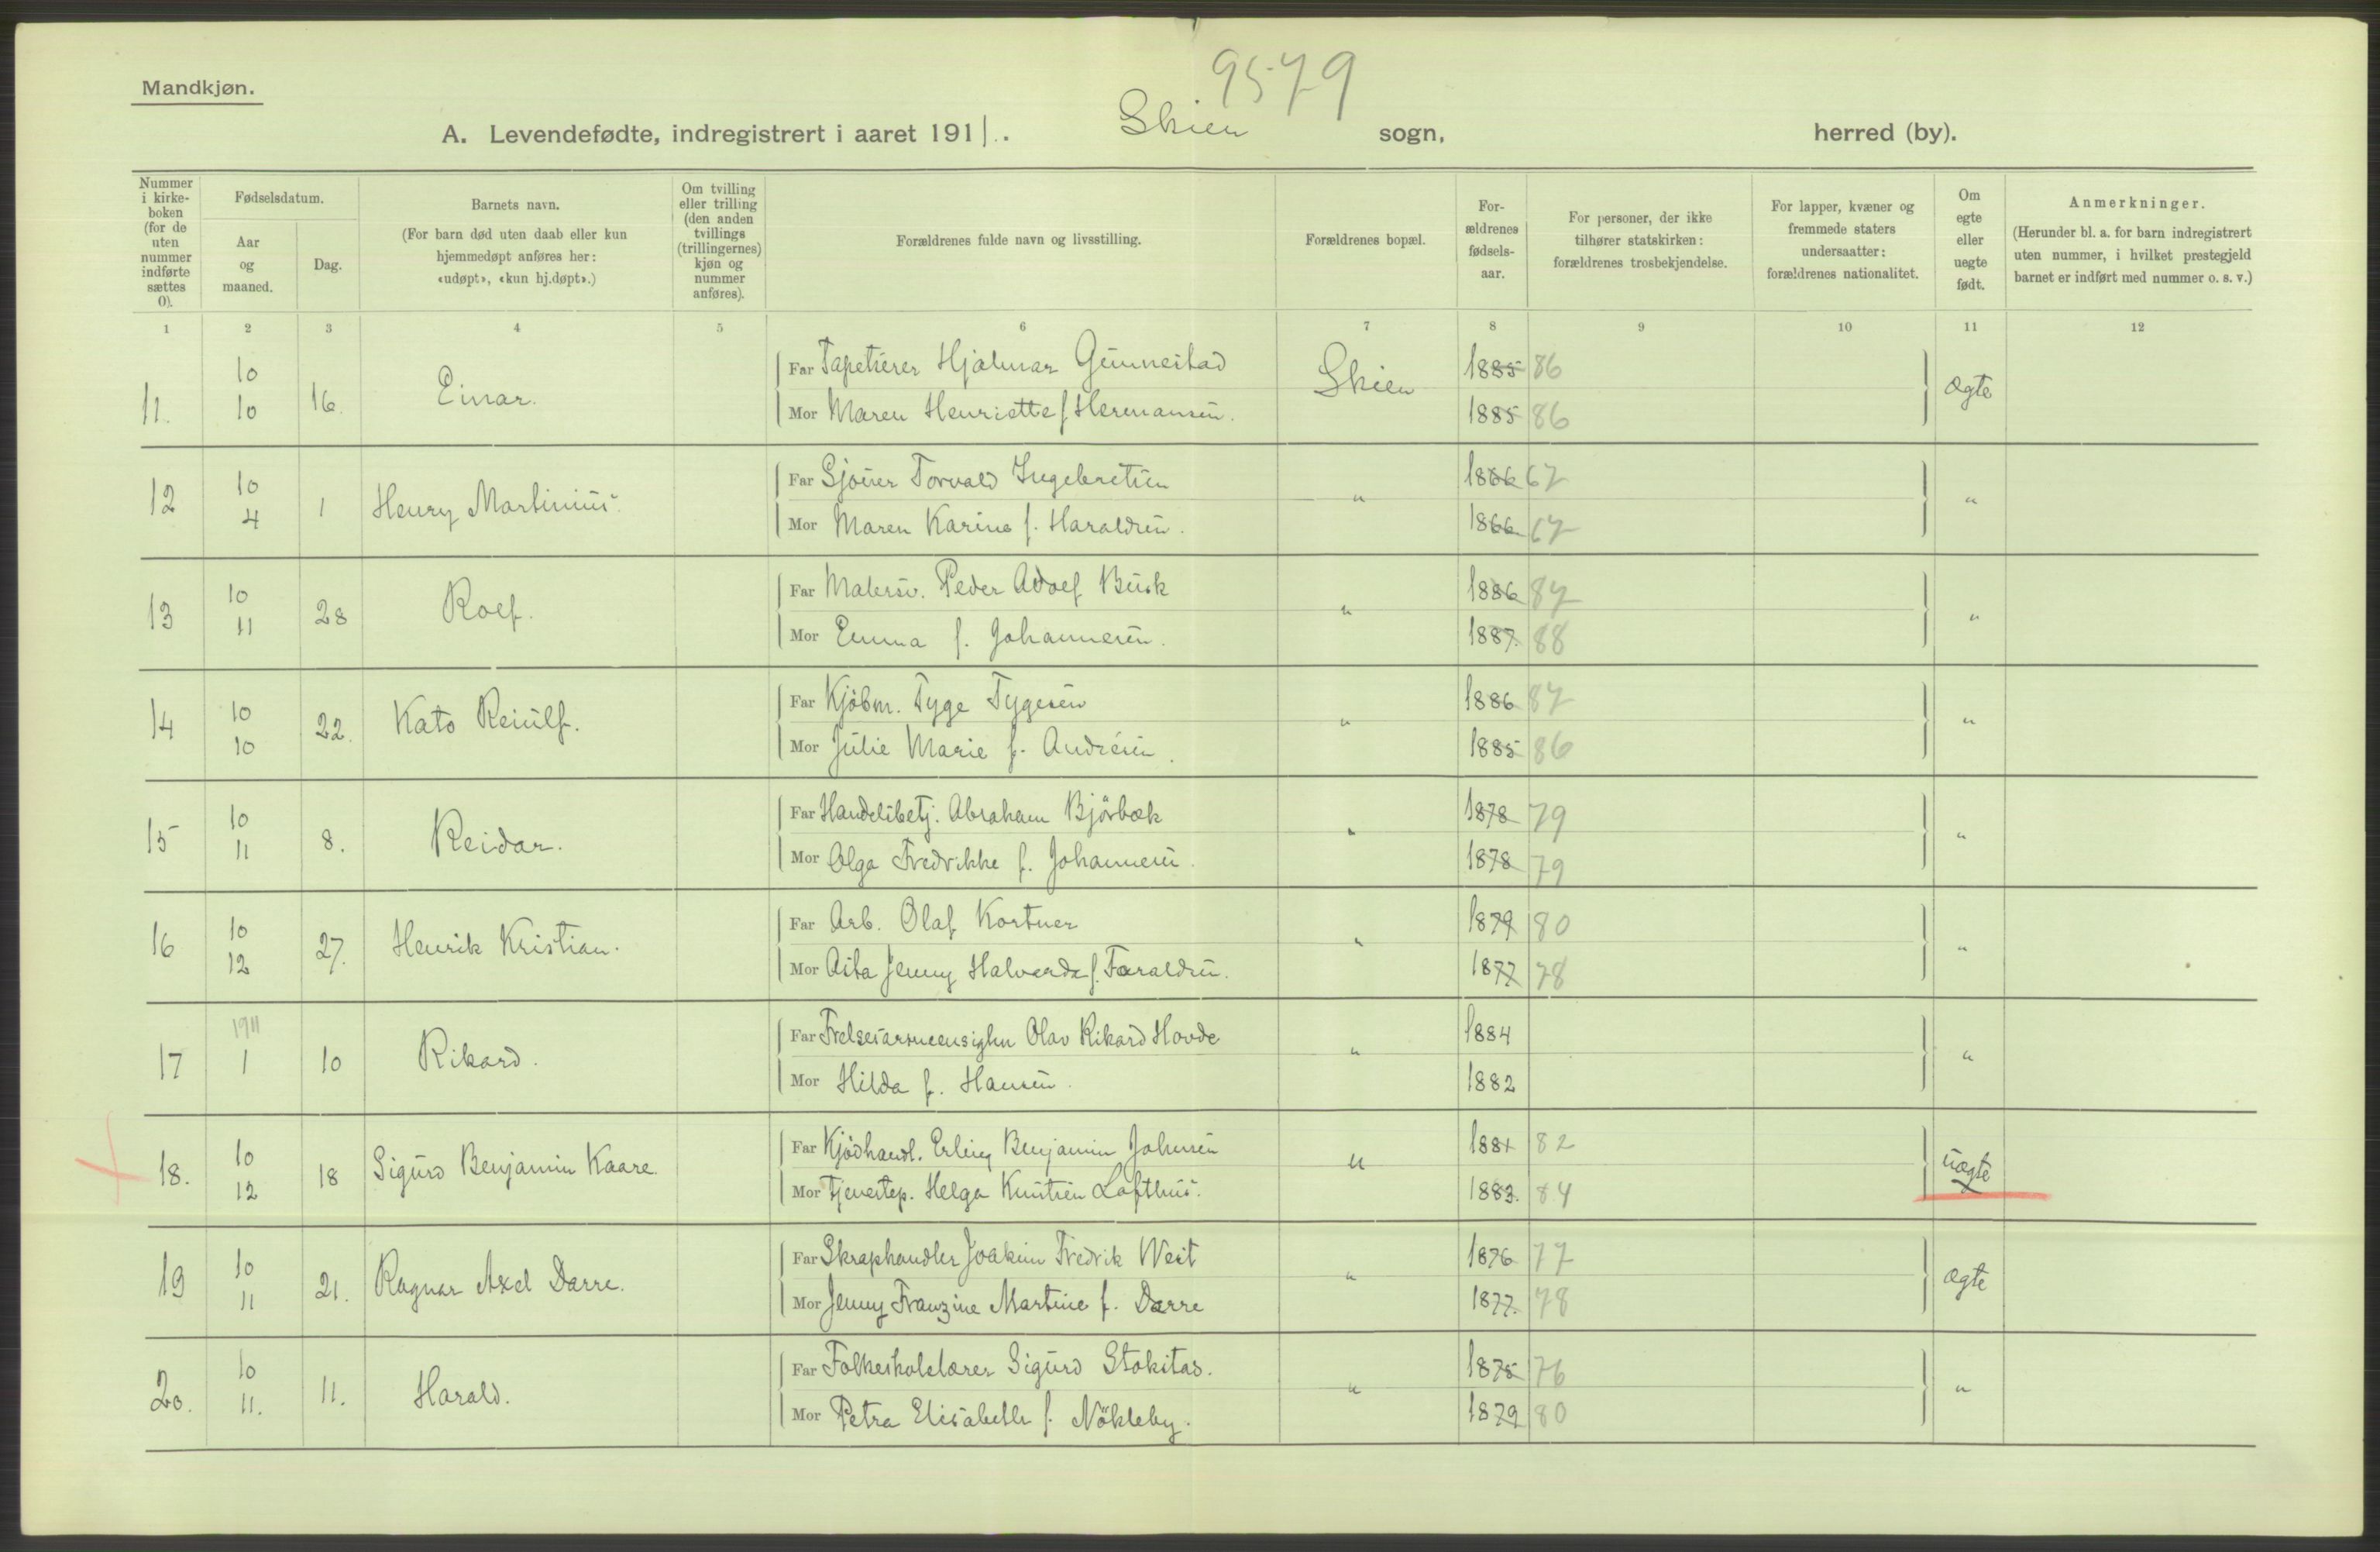 9579
Mandkjøn.
A. Levendefødte, indregistrert i aaret 1911. Skien sogn, herred (by).
Nummer i kirke- boken (for de uten nummer indførte sættes 0).
Fødselsdatum.
Aar og maaned.
Dag.
Barnets navn.
(For barn død uten daab eller kun hjemmedøpt anføres her: «udøpt», «kun hj.døpt».)
Om tvilling eller trilling (den anden tvillings (trillingernes) kjøn og nummer anføres).
Forældrenes fulde navn og livsstilling.
Forældrenes bopæl.
For- ældrenes fødsels- aar.
For personer, der ikke tilhører statskirken: forældrenes trosbekjendelse.
For lapper, kvæner og fremmede staters undersaatter: forældrenes nationalitet.
Om egte eller uegte født.
Anmerkninger.
(Herunder bl. a. for barn indregistrert uten nummer, i hvilket prestegjeld barnet er indført med nummer o. s. v.)
1 2 3 4 5 6 7 8 9 10 11 12
11. 10 10 16. Einar. Far Tapetserer Hjalmar Gunnestad Skien 1885 86 ægte
Mor Maren Henriette f. Hermansen. 1885 86
12 10 4 1 Henry Martinius. Far Sjøurer Torvald Ingebretsen " 1866 67 "
Mor Maren Karine f. Haraldsen. 1866 67
13 10 11 28 Rolf. Far Malersv. Peder Adolf Busk " 1886 87 "
Mor Emma f. Johannesen. 1887. 88
14 10 10 22. Kato Reiulf. Far Kjøbm. Tyge Tygesen " 1886 87 "
Mor Julie Marie f. Andresen. 1885 86
15 10 11 8. Reidar. Far Handelsbetj. Abraham Bjørbæk " 1878 79 "
Mor Olga Fredrikke f. Johannesen. 1878 79
16 10 12 27. Henrik Kristian. Far Arb. Olaf Kortner " 1879 80 "
Mor Jenny f. Taraldsen. 1877 78
17 1911 1 10 Rikard. Far Olav Rikard Hovde " 1884 "
Mor Hilda f. Hansen. 1882
18. 10 12 18 Sigurd Benjamin Kaare. Far Kjødhandl. Erling Benjamin Johnsen " 1881 82 uægte
Mor Tjenestep. Helga Knutsen Lofthus. 1883. 84
19 10 11 21. Ragnar Axel Darre. Far Skraphandler Joakim Fredrik West " 1876 77 ægte
Mor Jenny Franzine Martine f. Darre 1877. 78
20. 10 11. 11. Harald. Far Folkeskolelærer Sigurd Stokstad. " 1875 76 "
Mor Petra Elisabeth f. Nökleby. 1879 80